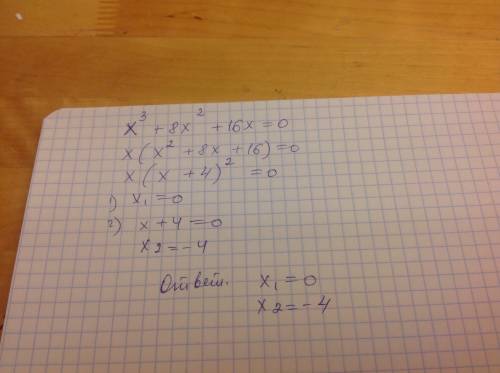 x³ + 8x² + 16x = 0
x(x² + 8x + 16) = 0
x(x + 4)² = 0
1) x₁ = 0
2) x + 4 = 0
x2 = -4
Ответ. x₁ = 0
x2 = -4